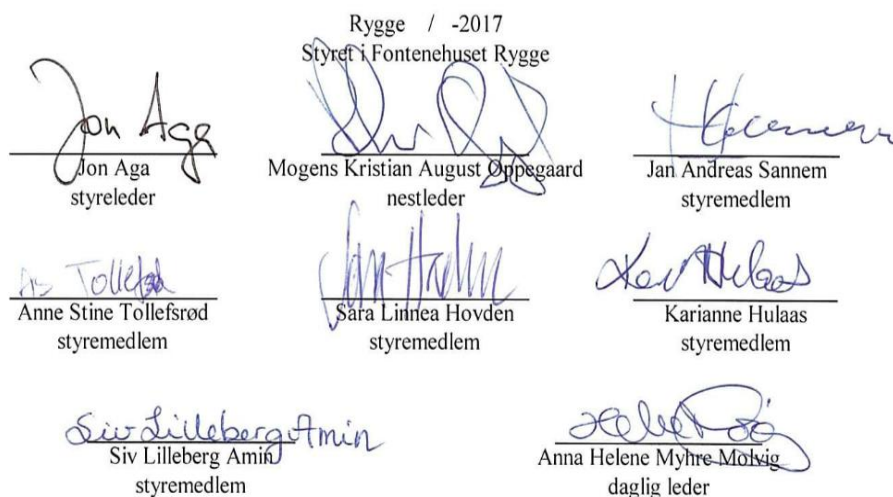 Rygge / -2017
Styret i Fontenehuset Rygge
Jon Aga
Jon Aga
styreleder
Mogens Kristian August Øppegaard
nestleder
Jan Andreas Sannem
styremedlem
As Tollefsrød
Anne Stine Tollefsrød
styremedlem
Sara Linnea Hovden
styremedlem
Kari Hulaas
Karianne Hulaas
styremedlem
Siv Lilleberg Amin
Siv Lilleberg Amin
styremedlem
Anna Helene Myhre Molvig
daglig leder